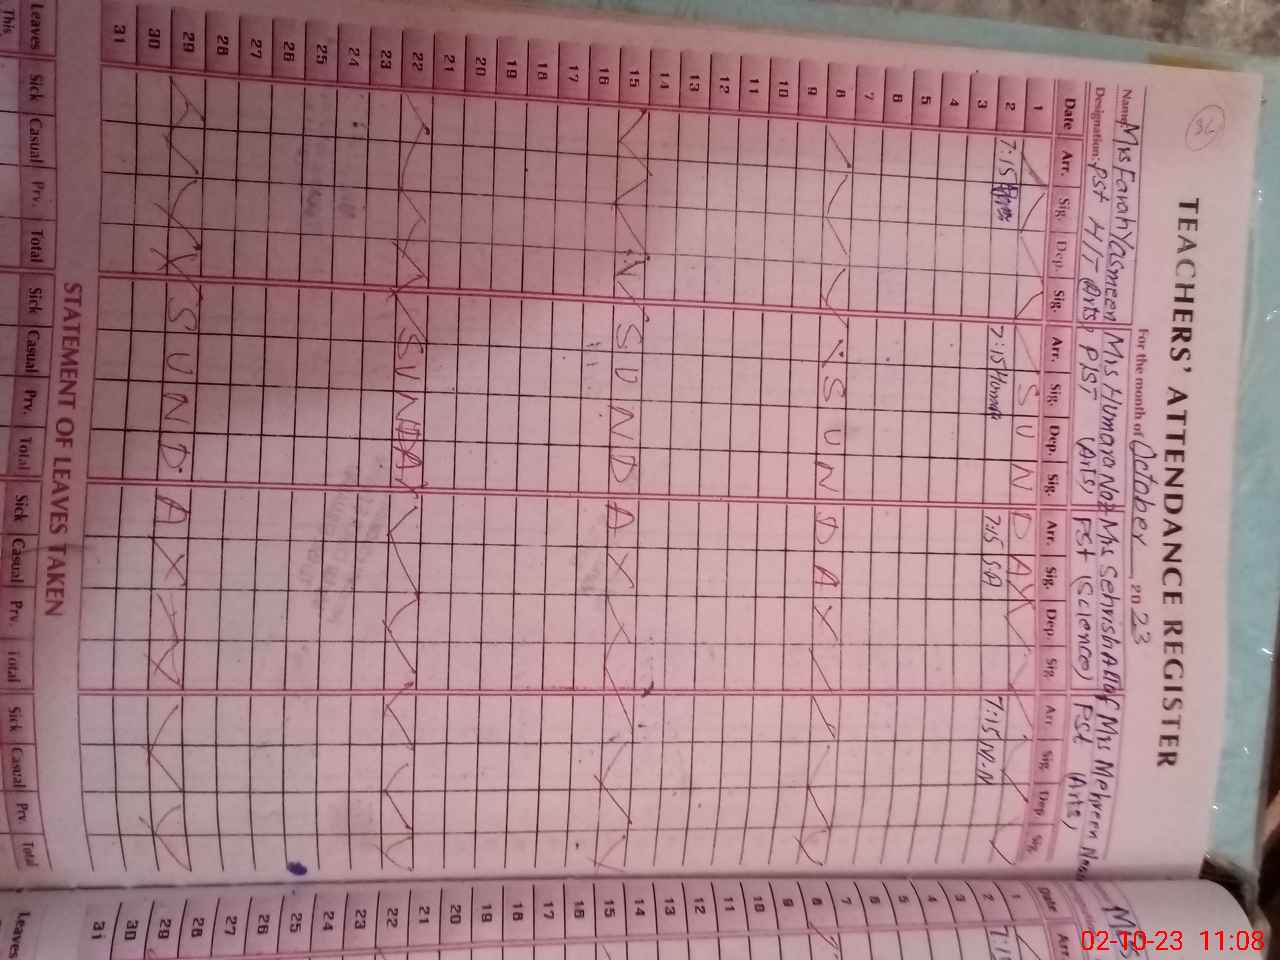 34
TEACHERS' ATTENDANCE REGISTER
For the month of October 2023
Name Mrs Farah Yasmeen Mrs Humara Naz Mrs Sehrish Altaf Mrs Mehreen
Designation: PST H/T (Arts) PST (Arts) PST (Science) PST (Arts)
Date Arr. Sig. Dep. Sig. Arr. Sig. Dep. Sig. Arr. Sig. Dep. Sig. Arr. Sig. Dep. Sig.
1 SUNDAY
2 7:15 7:15 Humara 7:15 SA 7:15 N-N
3
4
5
6
7
8 SUNDAY
9
10
11
12
13
14
15 SUNDAY
16
17
18
19
20
21
22 SUNDAY
23
24
25
26
27
28
29 SUNDAY
30
31
STATEMENT OF LEAVES TAKEN
Leaves Sick Casual Prv. Total Sick Casual Prv. Total Sick Casual Prv. Total Sick Casual Prv. Total
This
Mrs
Date Arr.
1
2 7:1
3
4
5
6
7
8
9
10
11
12
13
14
15
16
17
18
19
20
21
22
23
24
25
26
27
28
29
30
31
Leaves
02-10-23 11:08